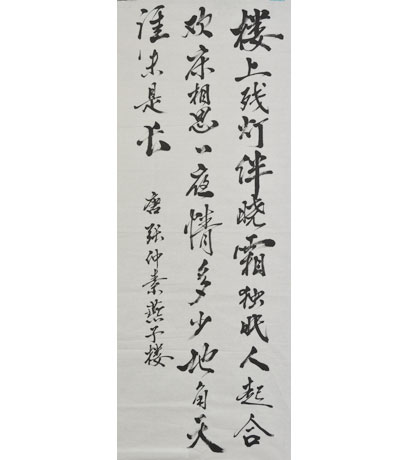 楼上残灯伴晓霜独眠人起合
欢床相思一夜情多少地角天
涯未是长
唐张仲素燕子楼